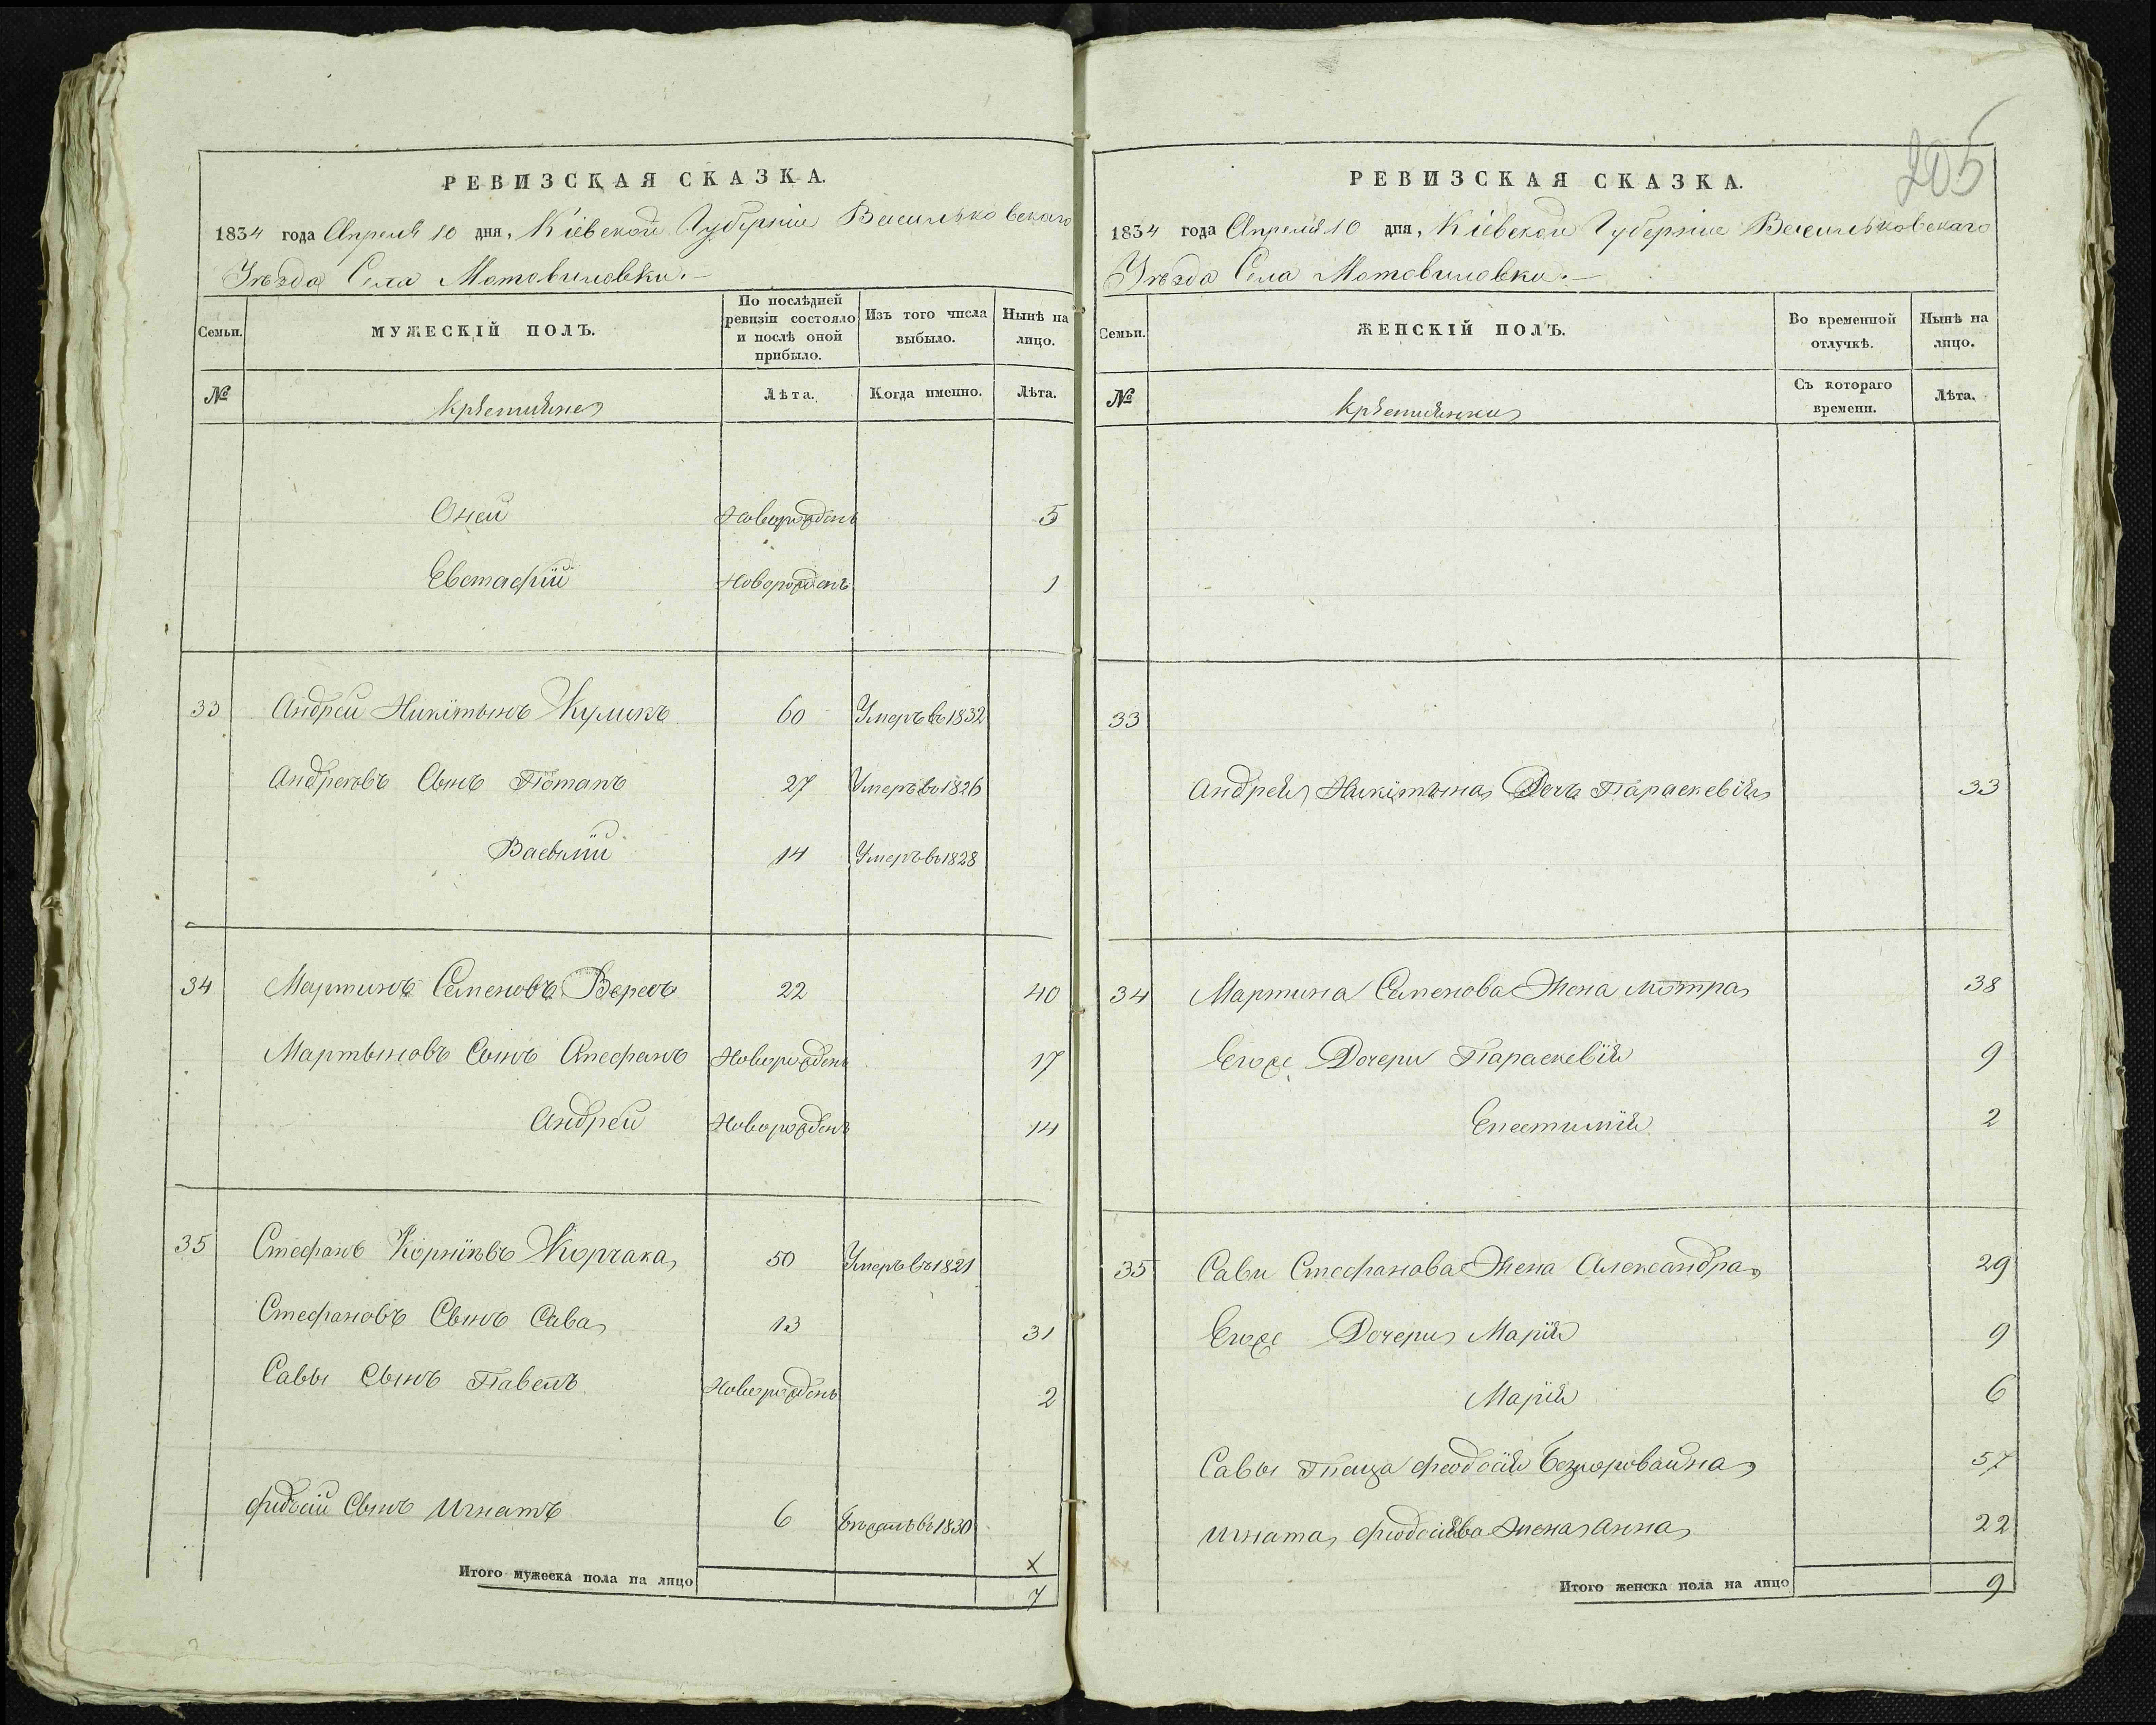 РЕВИЗСКАЯ СКАЗКА.
1834 года Апреля 10 дня, Кіевской Губерніи Васильковскаго
Уѣзда Села Мотовиловки.
Семьи.
МУЖЕСКІЙ ПОЛЪ.
По послѣдней ревизіи состояло и послѣ оной прибыло.
Изъ того числа выбыло.
Нынѣ на лицо.
№
Крѣстияне
Лѣта.
Когда именно.
Лѣта.
Новорожденъ 5
Евстафій Новорожденъ 1
33 Андрей Никітынъ Куликъ 60 Умеръ въ 1832
Андреевъ Сынъ Потапъ 27 Умеръ въ 1826
Васылий 14 Умеръ въ 1828
34 Мартинъ Семеновъ 22 40
Мартыновъ Сынъ Стефанъ Новорожденъ 17
Андрей Новорожденъ 14
35 Стефанъ Корніевъ Корчака 50 Умеръ въ 1821
Стефановъ Сынъ Сава 13 31
Савы Сынъ Павелъ Новорожденъ 2
Сынъ Игнатъ 6 въ 1830
х
Итого мужеска пола на лицо 7
205
РЕВИЗСКАЯ СКАЗКА.
1834 года Апреля 10 дня, Кіевской Губерніи Васильковскаго
Уѣзда Села Мотовиловки.
Семьи.
ЖЕНСКІЙ ПОЛЪ.
Во временной отлучкѣ.
Нынѣ на лицо.
№
Крѣстиянки
Съ котораго времени.
Лѣта.
33
Андрея Никітына Дочь Параскевія 33
34 Мартина Семенова Жена Мотра 38
Егоже Дочери Параскевія 9
Епестимія 2
35 Сави Стефанова Жена Александра 29
Егоже Дочери Марія 9
Марія 6
Савы Теща Феодосія Безкоровайна 57
Игната Жена Анна 22
Итого женска пола на лицо 9